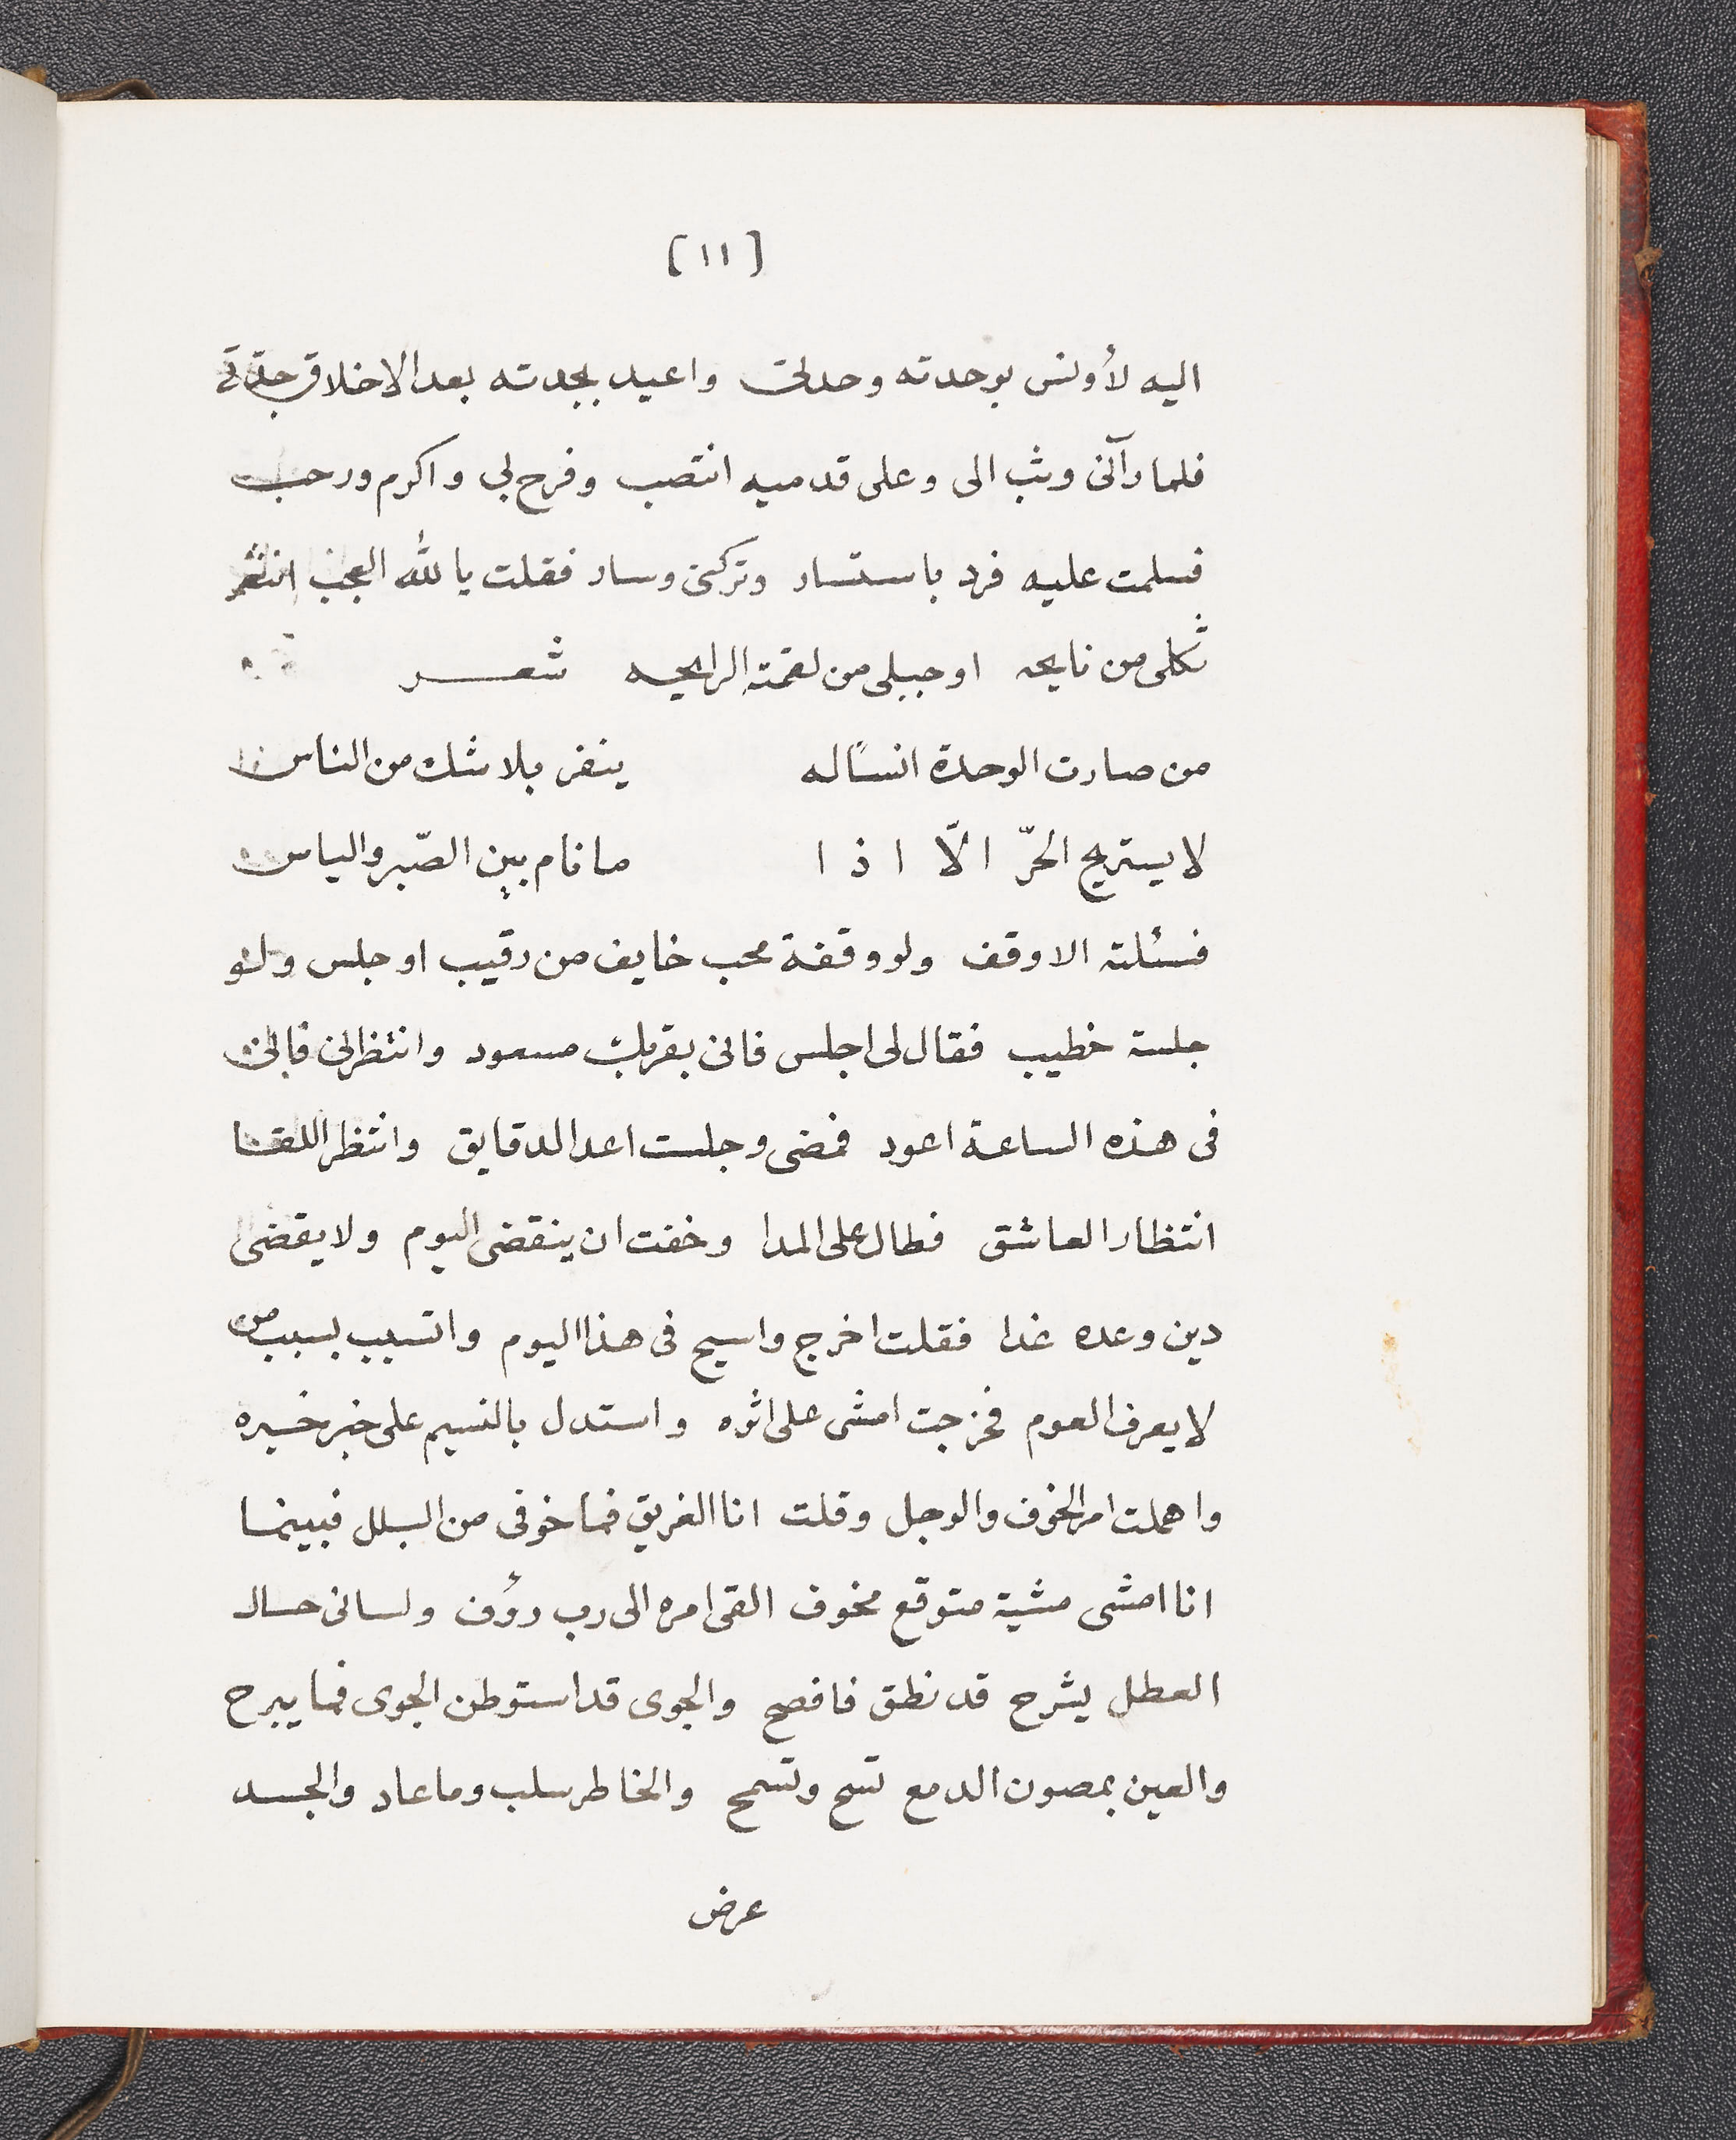 [١١]
اليه لأونس بوحدته وحدتى واعيد بجدته بعد الاخلاق جدّتى
فلما رآنى وثب الى وعلى قدميه انتصب وفرح بى واكرم ورحب
فسلمت عليه فرد باستسار وتركنى وسار فقلت يا لله العجب انفر
ثكلى من نايحه او حبلى من لقمته الرايحه شعر
من صارت الوحدة انسًا له ينفر بلا شك من الناس
لا يستريح الحرّ الّا اذا ما نام بين الصّبر والياس
فسئلته الا وقف ولو وقفة محب خايف من رقيب او جلس ولو
جلسة خطيب فقال لى اجلس فانى بقربك مسعود وانتظرنى فاننى
فى هذه الساعة اعود فمضى وجلست اعد الدقايق وانتظر اللقا
انتظار العاشق فطال على المدا وخفت ان ينقضى اليوم ولا يقضى
دين وعده غدا فقلت اخرج واسيح فى هذا اليوم واتسبب بسبب من
لا يعرف العوم فخرجت امشى على اثره واستدل بالنسيم على خبر خبره
واهملت امر الخوف والوجل وقلت انا الغريق فما خوفى من البلل فبينما
انا امشى مشية متوقع مخوف القى امره الى رب رؤف ولسانى حال
العطل يشرح قد نطق فافصح والجوى قد استوطن الجوى فما يبرح
والعين بمصون الدمع تسح وتسمح والخاطر سلب وما عاد والجسد
عرض